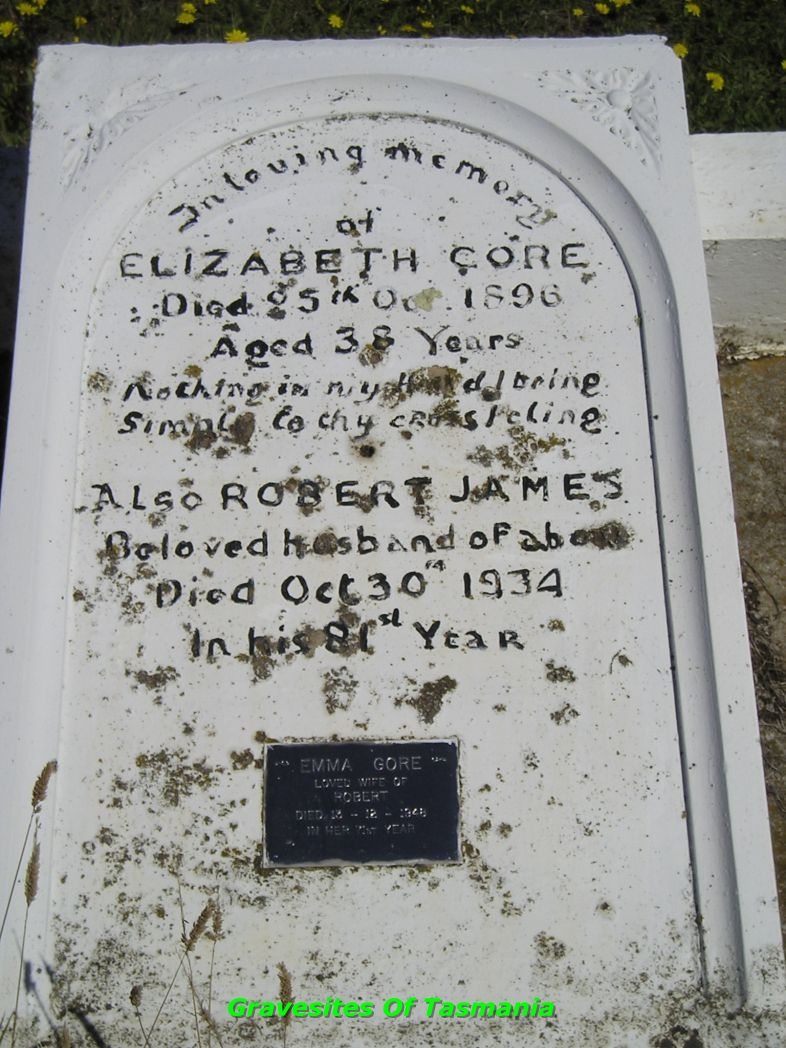 In loving memory
of
ELIZABETH GORE
Died 25th Oct 1896
Aged 38 Years
Nothing in my Hand I bring
Simply to thy cross I cling
Also ROBERT JAMES
Beloved husband of above
Died Oct 30th 1934
In his 81st Year
EMMA GORE
LOVED WIFE OF
ROBERT
DIED 13 - 12 - 1948
IN HER YEAR
Gravesites Of Tasmania